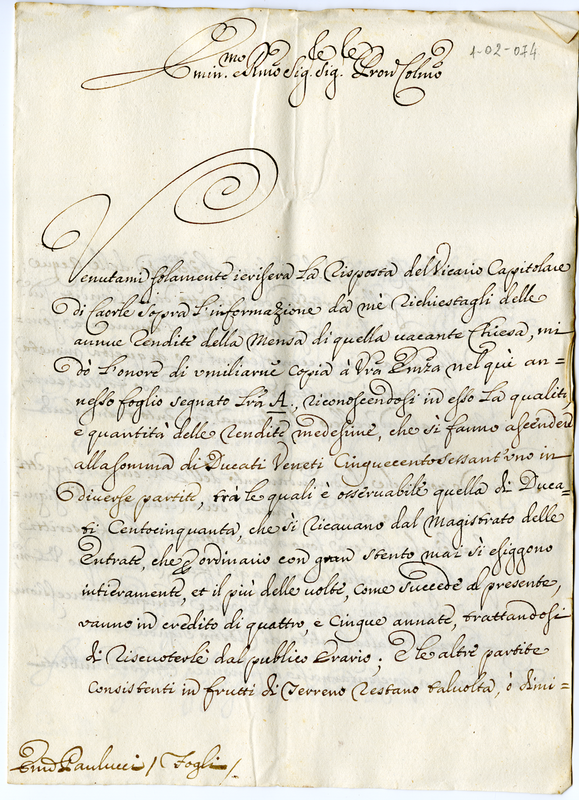 1-02-074
Emin.mo e Rmo Sig.re Sig.re Pron Colmo
Venutami solamente ierisera la risposta del Vicario Capitolare
di Caorle sopra l'informazione da mè richiestagli delle
annue rendite della Mensa di quella vacante Chiesa, mi
dò l'onore di umiliarne copia à Vra Emza nel quì an=
nesso foglio segnato lra A., riconoscendosi in esso la qualità
e quantità delle rendite medesime, che si fanno ascendere
alla somma di Ducati Veneti Cinquecentosessant'uno in
diverse partite, trà le quali è osservabile quella di Duca=
ti Centocinquanta, che si ricavano dal Magistrato delle
Entrate, che p ordinario con gran stento mai si esiggono
intieramente, et il più delle volte, come succede al presente,
vanno in credito di quattro, e cinque annate, trattandosi
di riscuoterle dal publico Erario; E le altre partite
consistenti in frutti di Terreno restano talvolta, ò dimi=
Emo Paulucci / Fogli /.